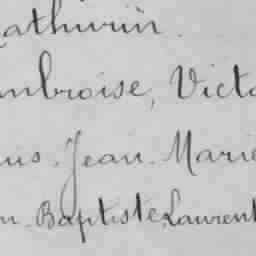 athurin.
mbroise, Victo
us. Jean. Marie
n. Baptiste, Laurent